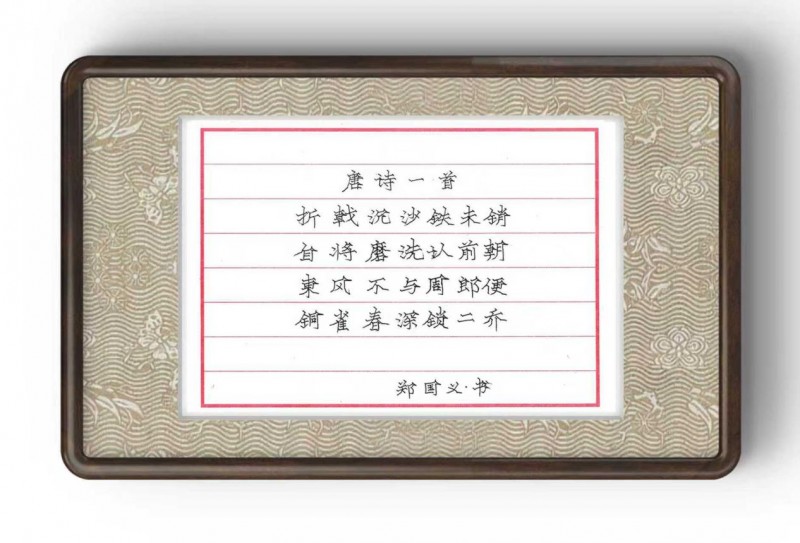 唐诗一首
折戟沉沙鉄未銷
自将磨洗认前朝
東风不与周郎便
铜雀春深鎖二乔
郑国义·书